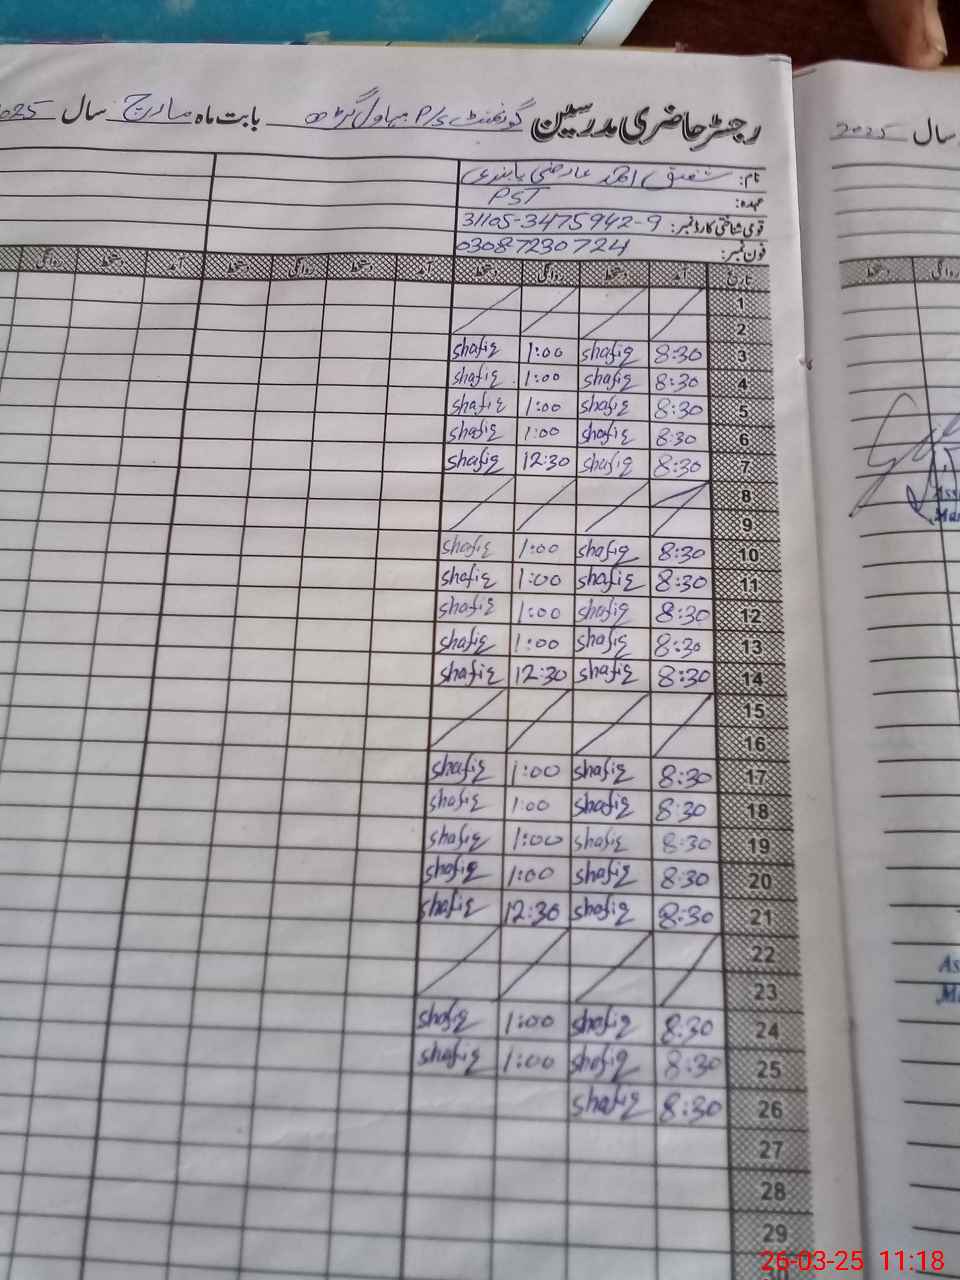 رجسٹر حاضری مدرسین گورنمنٹ P/S بہاول گڑھ بابت ماہ مارچ سال 2025
نام: شفیق احمد عارضی پابندی
عہدہ: PST
قومی شناختی کارڈ نمبر: 31105-3475942-9
فون نمبر: 03087230724
تاریخ آمد دستخط روانگی دستخط آمد دستخط روانگی دستخط آمد دستخط روانگی
1
2
3 8:30 shafiq 1:00 shafiq
4 8:30 shafiq 1:00 shafiq
5 8:30 shafiq 1:00 shafiq
6 8:30 shafiq 1:00 shafiq
7 8:30 shafiq 12:30 shafiq
8
9
10 8:30 shafiq 1:00 shafiq
11 8:30 shafiq 1:00 shafiq
12 8:30 shafiq 1:00 shafiq
13 8:30 shafiq 1:00 shafiq
14 8:30 shafiq 12:30 shafiq
15
16
17 8:30 shafiq 1:00 shafiq
18 8:30 shafiq 1:00 shafiq
19 8:30 shafiq 1:00 shafiq
20 8:30 shafiq 1:00 shafiq
21 8:30 shafiq 12:30 shafiq
22
23
24 8:30 shafiq 1:00 shafiq
25 8:30 shafiq 1:00 shafiq
26 8:30 shafiq
27
28
29
30
سال 2025
روانگی دستخط
26-03-25 11:18